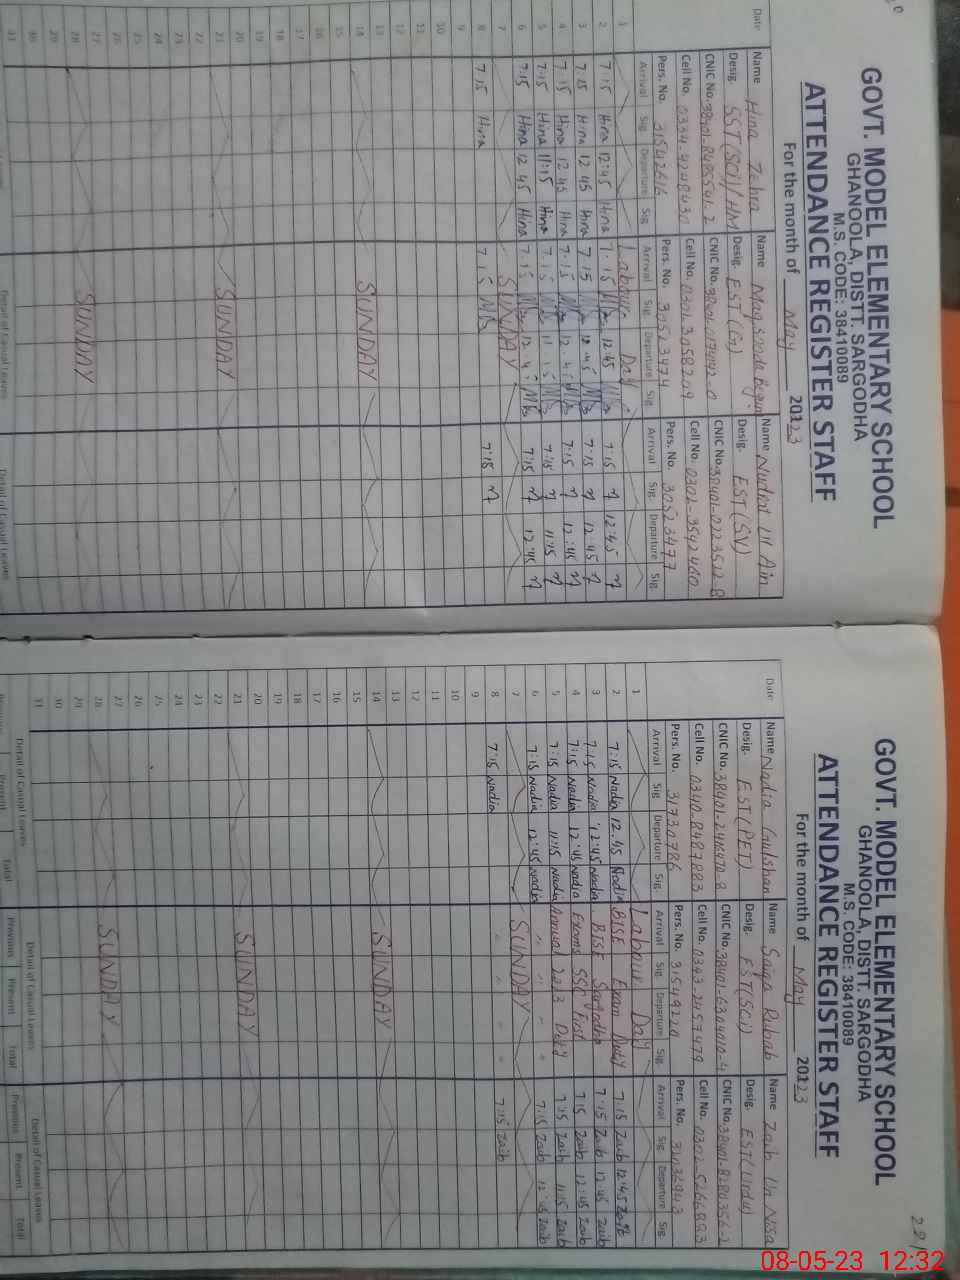 GOVT. MODEL ELEMENTARY SCHOOL
GHANOOLA, DISTT. SARGODHA
M.S. CODE: 38410089
ATTENDANCE REGISTER STAFF
For the month of May 2023
Date Name Hina Zehra Name Maqsooda Begum Name Nudrat Ul Ain
Desig. SST(SCI)/HM Desig. EST(G) Desig. EST(SV)
CNIC No. CNIC No. CNIC No.
Cell No. Cell No. Cell No. 0302-3542460
Pers. No. 31542616 Pers. No. 30523474 Pers. No. 30523477
Arrival Sig. Departure Sig. Arrival Sig. Departure Sig. Arrival Sig. Departure Sig.
1 Labour Day
2 7:15 Hina 12:45 Hina 7:15 12:45 7:15 12:45
3 7:15 Hina 12:45 Hina 7:15 12:45 7:15 12:45
4 7:15 Hina 12:45 Hina 7:15 12:45 7:15 12:45
5 7:15 Hina 11:15 Hina 7:15 11:15 7:15 11:15
6 7:15 Hina 12:45 Hina 7:15 12:45 7:15 12:45
7 SUNDAY
8 7:15 Hina 7:15 7:15
9
10
11
12
13
14 SUNDAY
15
16
17
18
19
20
21 SUNDAY
22
23
24
25
26
27
28 SUNDAY
29
30
31
Detail of Casual Leaves Detail of Casual Leaves
GOVT. MODEL ELEMENTARY SCHOOL
GHANOOLA, DISTT. SARGODHA
M.S. CODE: 38410089
ATTENDANCE REGISTER STAFF
For the month of May 2023
Date Name Nadia Gulshan Name Saiqa Rubab Name Zaib Un Nisa
Desig. EST(PET) Desig. EST(SCI) Desig. EST(Urdu)
CNIC No. CNIC No. 38401-6304010-4 CNIC No.
Cell No. 0340-8487883 Cell No. 0343-2457479 Cell No. 0302-5266883
Pers. No. 31730786 Pers. No. 31549220 Pers. No.
Arrival Sig. Departure Sig. Arrival Sig. Departure Sig. Arrival Sig. Departure Sig.
1 Labour Day
2 7:15 Nadia 12:45 Nadia BISE Exam Duty 7:15 Zaib 12:45 Zaib
3 7:15 Nadia 12:45 Nadia BISE Sargodha 7:15 Zaib 12:45 Zaib
4 7:15 Nadia 12:45 Nadia Exams SSC First 7:15 Zaib 12:45 Zaib
5 7:15 Nadia 11:15 Nadia Annual 2023 Duty 7:15 Zaib 11:15 Zaib
6 7:15 Nadia 12:45 Nadia " " " " 7:15 Zaib 12:45 Zaib
7 SUNDAY
8 7:15 Nadia " " " " 7:15 Zaib
9
10
11
12
13
14 SUNDAY
15
16
17
18
19
20
21 SUNDAY
22
23
24
25
26
27
28 SUNDAY
29
30
31
Detail of Casual Leaves Detail of Casual Leaves Detail of Casual Leaves
Previous Present Total Previous Present Total Previous Present Total
08-05-23 12:32